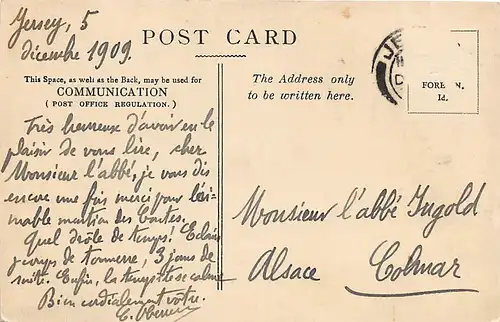 Jersey, 5
décembre 1909.
POST CARD
This Space, as well as the Back, may be used for
COMMUNICATION
(POST OFFICE REGULATION.)
The Address only
to be written here.
JE
D
FOREIGN.
1d.
Très heureuse d'avoir eu le
plaisir de vous lire, cher
Monsieur l'abbé, je vous dis
encore une fois merci pour
des Cartes.
Quel drôle de temps! Eclairs
coups de tonnerre, 3 jours de
suite. Enfin, la tempête se calme
Bien cordialement vôtre.
Monsieur l'abbé Ingold
Alsace Colmar